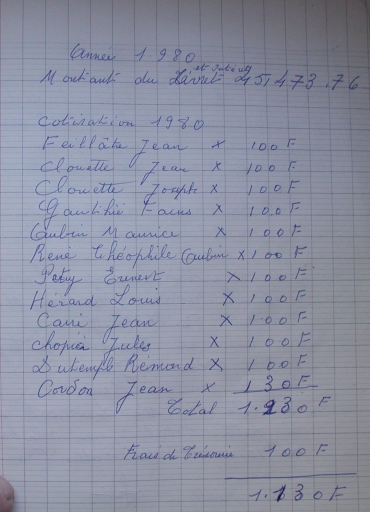 Année 1980
Montant du Livret et intérêts 45,473.76
cotisation 1980
Feillâte Jean x 100F
Clouette Jean x 100F
Clouette Joseph x 100F
Gautihié x 100F
Aubin Maurice x 100F
René Théophile Aubin x 100F
Petuy Ernest x 100F
Hérard Louis x 100F
Cani Jean x 100F
chopier Jules x 100F
Dutemple Rémond x 100F
Cordon Jean x 130F
Total 1.230F
Frais de Trésorerie 100F
1.130F